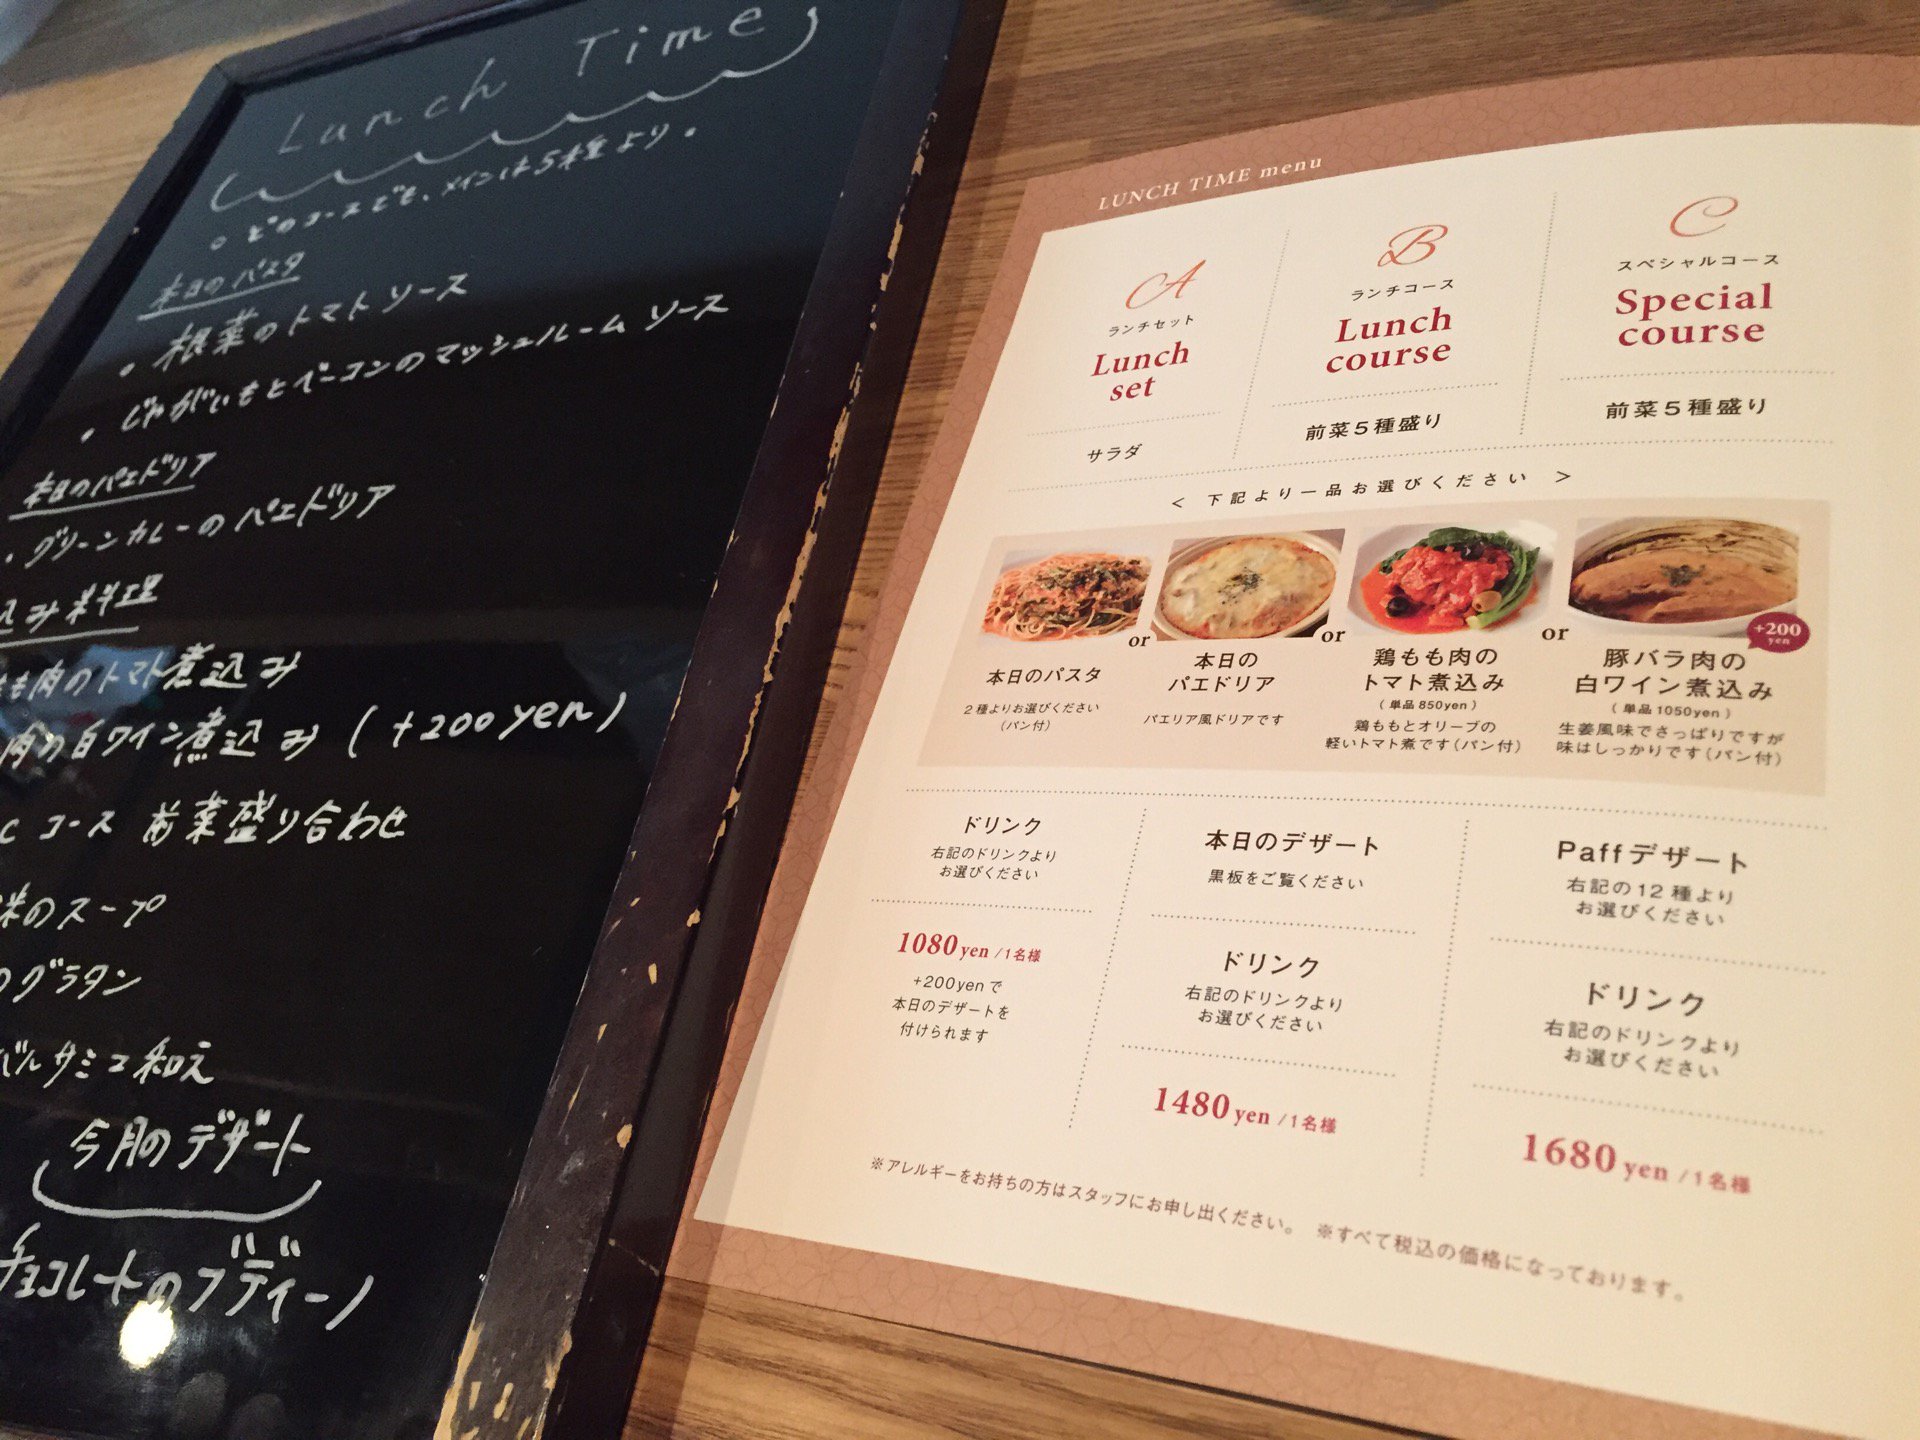 Lunch Time
○ どのコースでも、メインは5種より。
本日のパスタ
・根菜のトマトソース
・じゃがいもとベーコンのマッシュルームソース
本日のパエドリア
・グリーンカレーのパエドリア
込み料理
もも肉のトマト煮込み
肉の白ワイン煮込み (+200yen)
Cコース 前菜盛り合わせ
米のスープ
のグラタン
バルサミコ和え
今月のデザート
チョコレートのブディーノ
LUNCH TIME menu
A
ランチセット
Lunch
set
サラダ
B
ランチコース
Lunch
course
前菜5種盛り
C
スペシャルコース
Special
course
前菜5種盛り
< 下記より一品お選びください >
本日のパスタ
2種よりお選びください
(パン付)
or
本日の
パエドリア
パエリア風ドリアです
or
鶏もも肉の
トマト煮込み
(単品850yen)
鶏ももとオリーブの
軽いトマト煮です(パン付)
or
+200
yen
豚バラ肉の
白ワイン煮込み
(単品1050yen)
生姜風味でさっぱりですが
味はしっかりです(パン付)
ドリンク
右記のドリンクより
お選びください
1080yen /1名様
+200yenで
本日のデザートを
付けられます
本日のデザート
黒板をご覧ください
ドリンク
右記のドリンクより
お選びください
1480yen /1名様
Paffデザート
右記の12種より
お選びください
ドリンク
右記のドリンクより
お選びください
1680yen /1名様
※アレルギーをお持ちの方はスタッフにお申し出ください。 ※すべて税込の価格になっております。